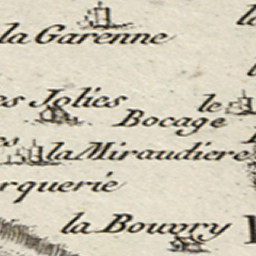 la Garenne
es Jolies
le
Bocage
la Miraudiere
rquerie
la Bouvry